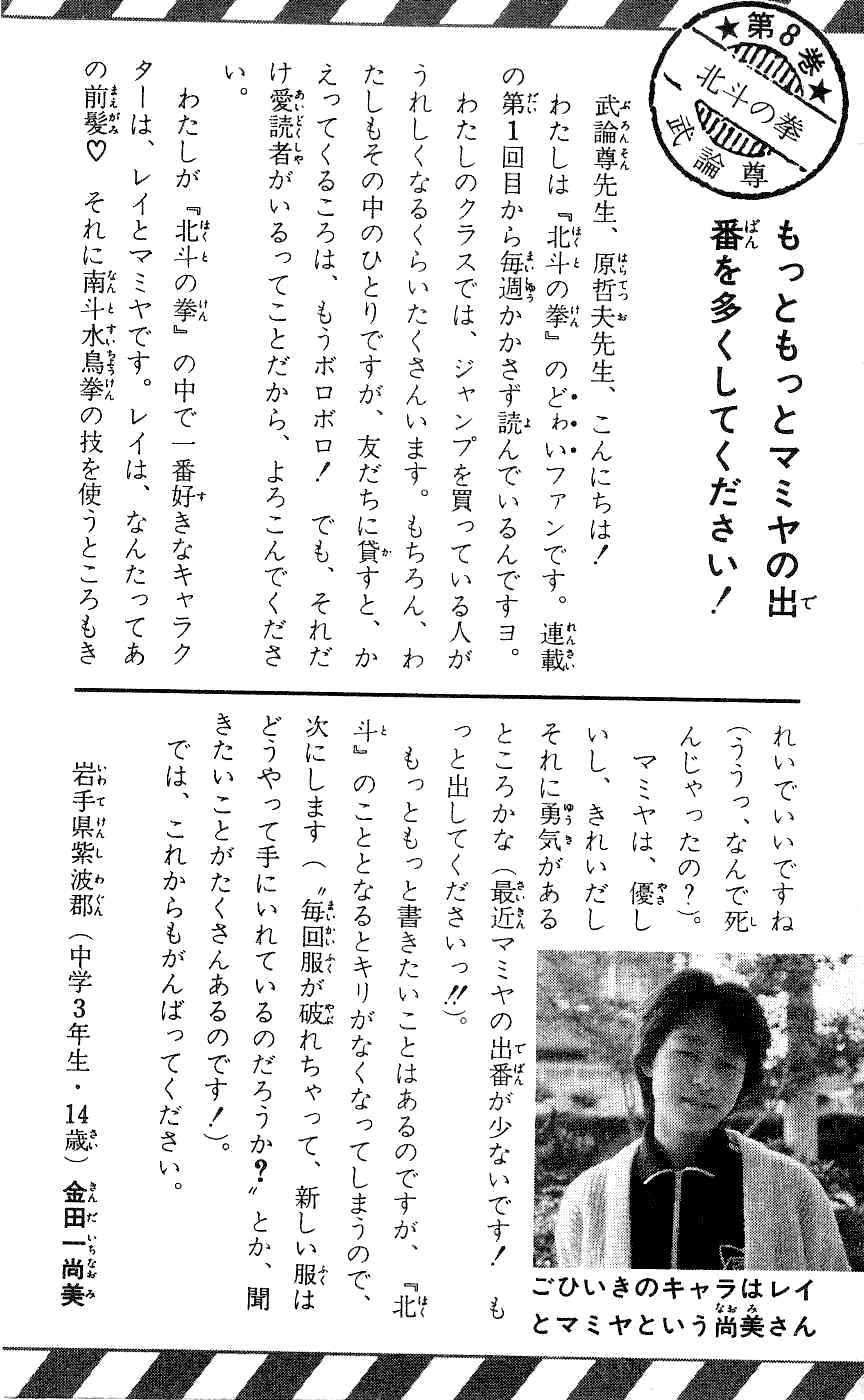 ★第8巻★
北斗の拳
武論尊
もっともっとマミヤの出
番を多くしてください！
武論尊先生、原哲夫先生、こんにちは！
わたしは『北斗の拳』のどわいファンです。連載
の第1回目から毎週かかさず読んでいるんですヨ。
わたしのクラスでは、ジャンプを買っている人が
うれしくなるくらいたくさんいます。もちろん、わ
たしもその中のひとりですが、友だちに貸すと、か
えってくるころは、もうボロボロ！　でも、それだ
け愛読者がいるってことだから、よろこんでくださ
い。
わたしが『北斗の拳』の中で一番好きなキャラク
ターは、レイとマミヤです。レイは、なんたってあ
の前髪♡　それに南斗水鳥拳の技を使うところもき
れいでいいですね
（ううっ、なんで死
んじゃったの？）。
マミヤは、優し
いし、きれいだし
それに勇気がある
ところかな（最近マミヤの出番が少ないです！　も
っと出してくださいっ!!）。
もっともっと書きたいことはあるのですが、『北
斗』のこととなるとキリがなくなってしまうので、
次にします（〝毎回服が破れちゃって、新しい服は
どうやって手にいれているのだろうか？〟とか、聞
きたいことがたくさんあるのです！）。
では、これからもがんばってください。
岩手県紫波郡（中学3年生・14歳）金田一尚美
ごひいきのキャラはレイ
とマミヤという尚美さん